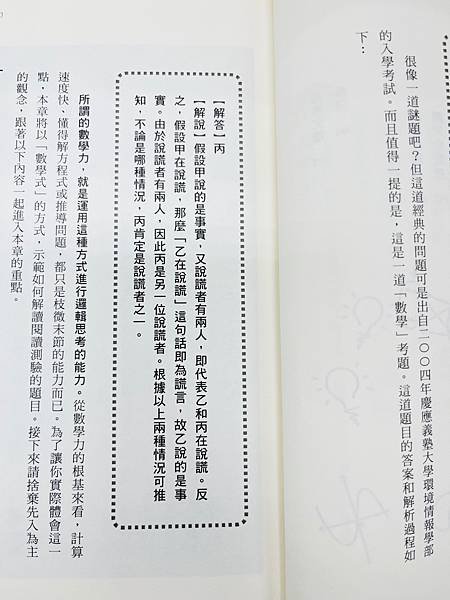 很像一道謎題吧？但這道經典的問題可是出自二〇〇四年慶應義塾大學環境情報學部
的入學考試。而且值得一提的是，這是一道「數學」考題。這道題目的答案和解析過程如
下：
【解答】丙
【解說】假設甲說的是事實，又說謊者有兩人，即代表乙和丙在說謊。反
之，假設甲在說謊，那麼「乙在說謊」這句話即為謊言，故乙說的是事
實。由於說謊者有兩人，因此丙是另一位說謊者。根據以上兩種情況可推
知，不論是哪種情況，丙肯定是說謊者之一。
所謂的數學力，就是運用這種方式進行邏輯思考的能力。從數學力的根基來看，計算
速度快、懂得解方程式或推導問題，都只是枝微末節的能力而已。為了讓你實際體會這一
點，本章將以「數學式」的方式，示範如何解讀閱讀測驗的題目。接下來請捨棄先入為主
的觀念，跟著以下內容一起進入本章的重點。